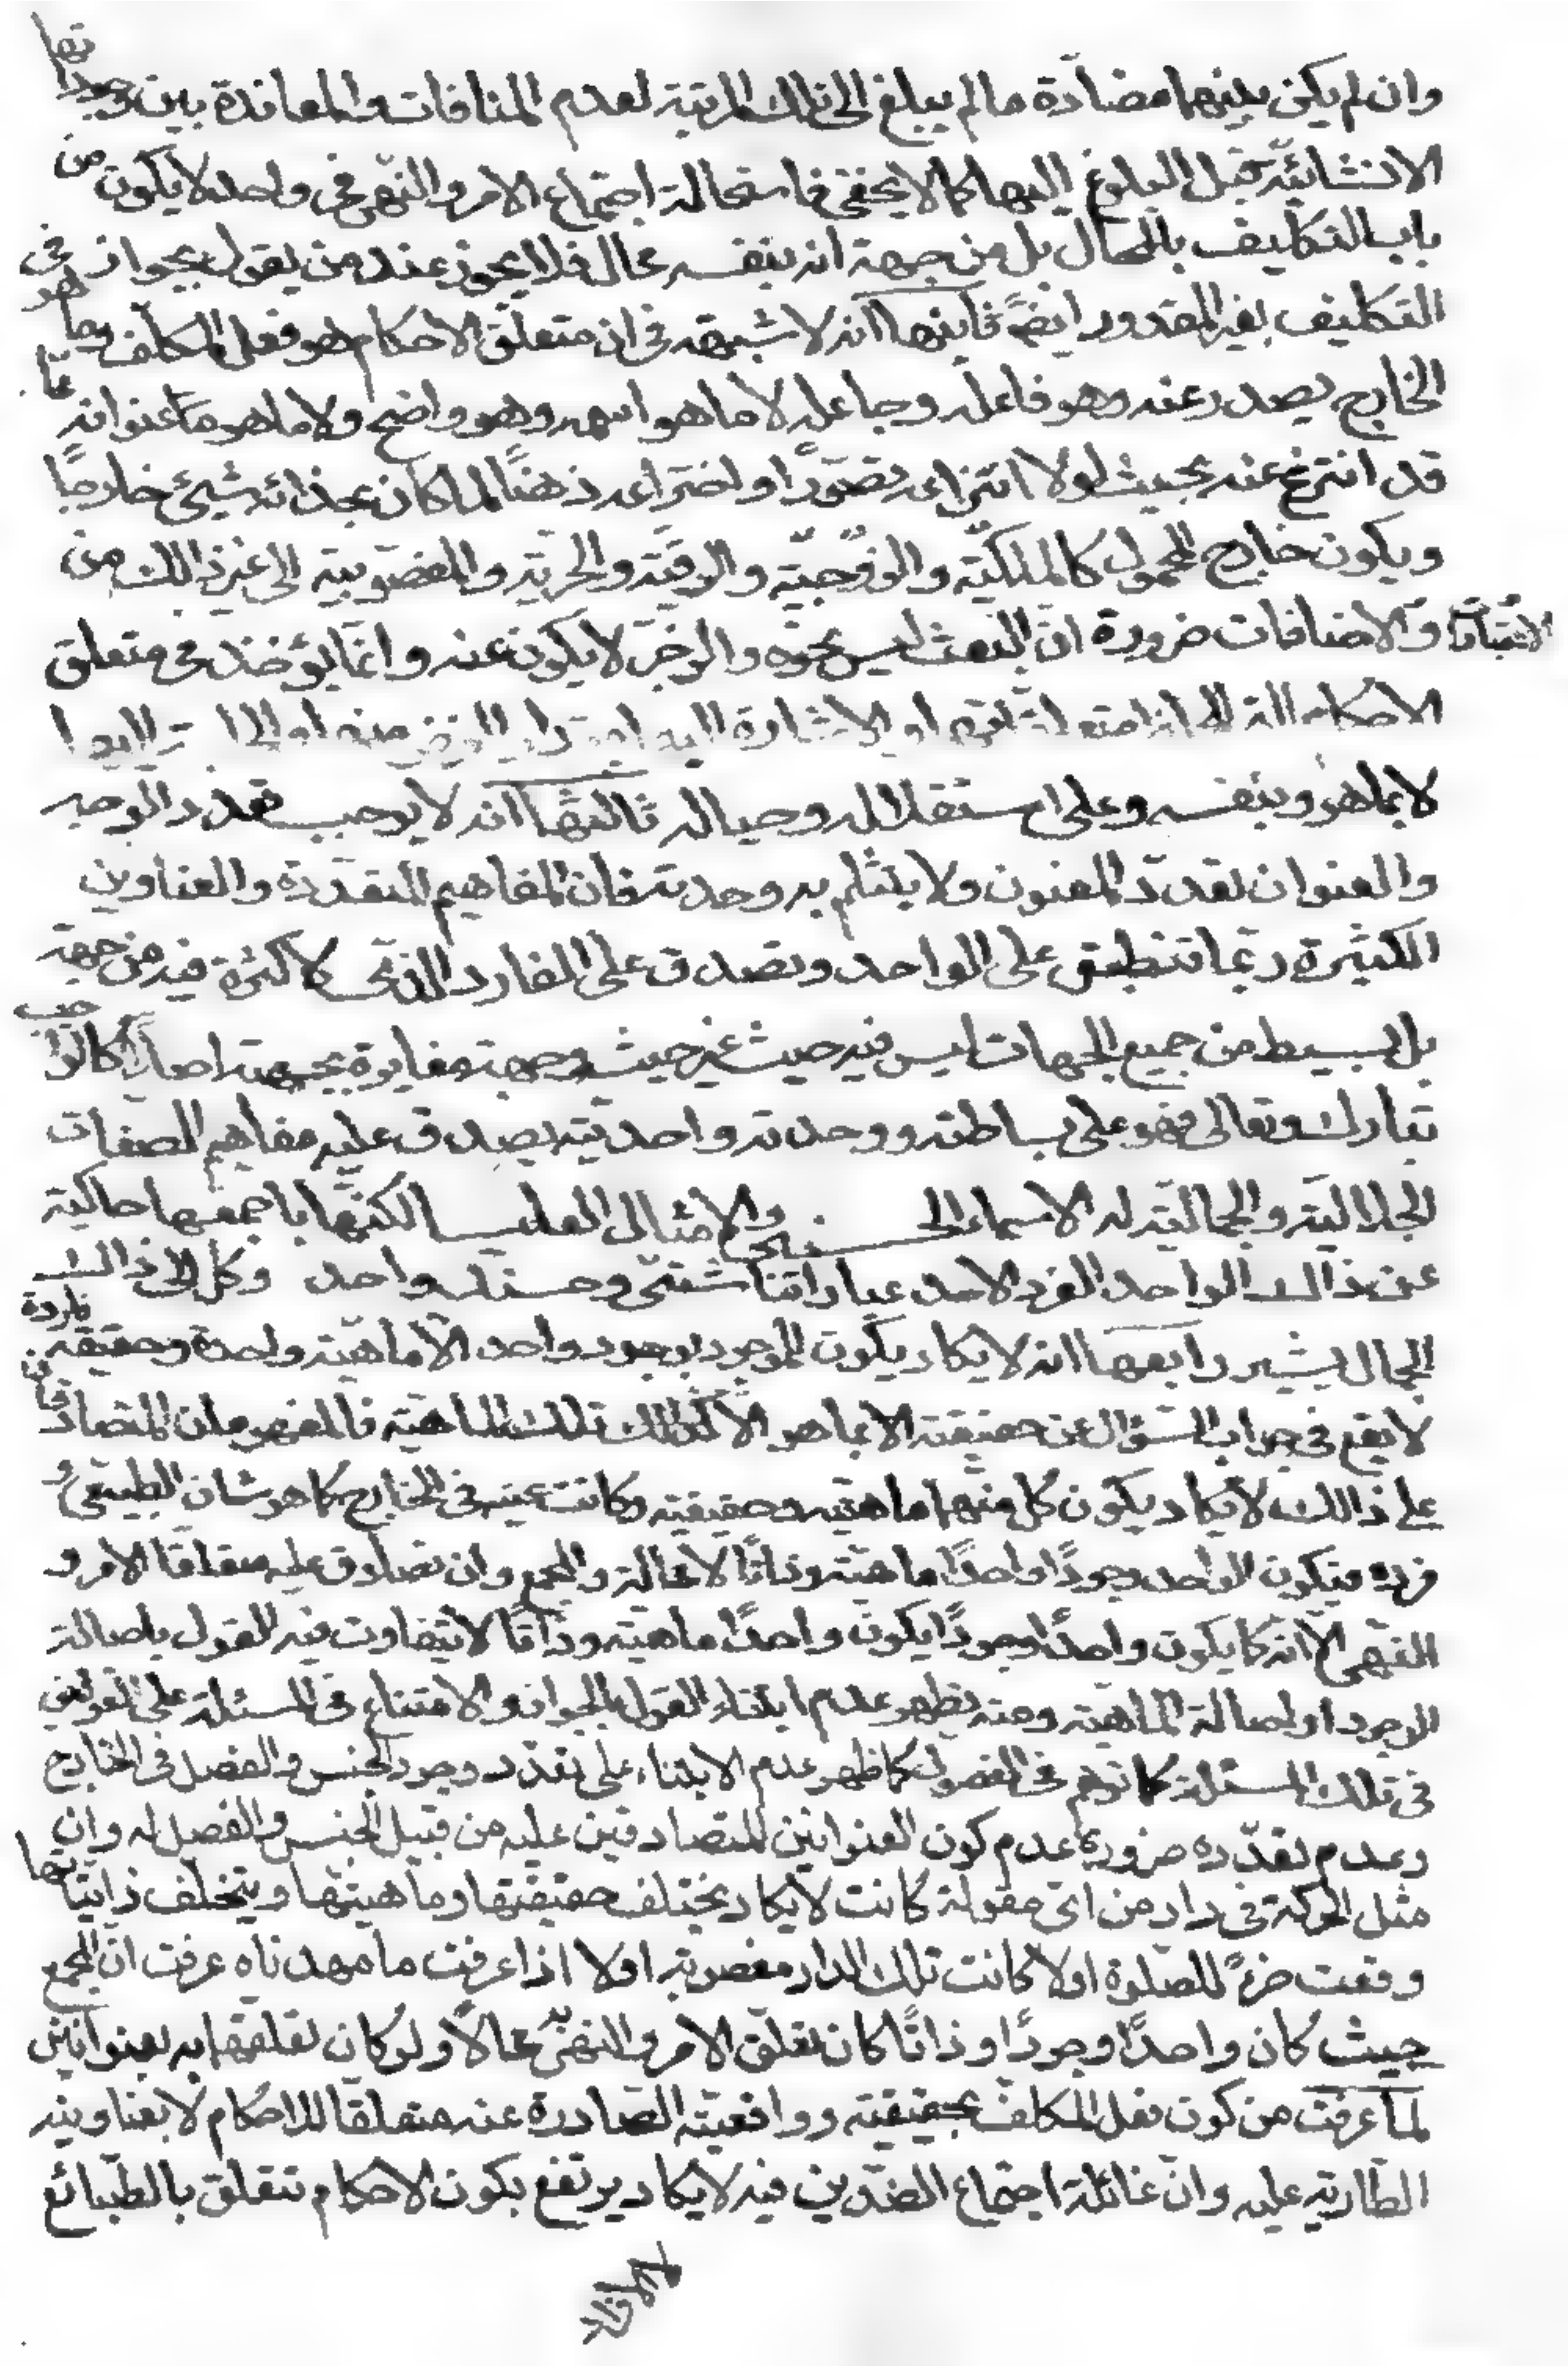 وان لم يكن بينهما مضادّة ما لم يبلغ الى تلك المرتبة لعدم المنافات والمعاندة بين وجوداتها
الانشائيّة قبل البلوغ اليها كما لا يخفى فاستحالة اجتماع الامر والنّهى فى واحد لا يكون من
باب التكليف بالمحال بل من جهة انه بنفسه محال فلا يجوز عند من يقول بجواز
التكليف بغير المقدور ايضً ثانيها انه لا شبهة فى ان متعلّق الاحكام هو فعل المكلّف وما هو فى
الخارج يصدر عنه وهو فاعله وجاعله لا ما هو اسمه وهو واضح ولا ما هو ممّا عنوانه
قد انتزع عنه بحيث لولا انتزاعه تصوّرًا واختراعه ذهنًا لما كان بحذائه شيئ خارجًا
ويكون خارج المحمول كالملكيّة والزوّجيّة والرقيّة والحريّة والمغصوبية الى غير ذالك من
الاعتبارات والاضافات ضرورة انّ البعث ليس نحوه والزجر لا يكون عنه وانّما يؤخذ فى متعلق
الاحكام الة
لا بما هو وبنفسه وعلى استقلاله وحياله ثالثها انه لا يوجب تعدد الوجه
والعنوان تعددّ المعنون ولا ينثلم به وحدته فان المفاهيم المتعدّدة والعناوين
الكثيرة ربّما تنطبق على الواحد وتصدق على الفارد الذى لا كثرة فيه من جهة
بل بسيط من جميع الجهات ليس فيه حيث غير حيث وجهة مغايرة بجهة اصلاً كالواجب
تبارك وتعالى فهو على بساطته ووحدته واحديّته يصدق عليه مفاهيم الصفات
الجلاليّة والجماليّة له الاسماء الحسنى والامثال العليا لكنّها باجمعها حاكية
عن ذالك الواحد الفرد الاحد عباراتنا شتّى وحسنك واحد وكل الى ذالك
الجمال يشير رابعها انه لا يكاد يكون للموجود بوجود واحد الّا ماهيّة واحدة وحقيقة فاردة
لا يقع فى جواب السّؤال عن حقيقته الا بما هو الّا تلك الماهيّة فالمفهومان المتصادقان
على ذالك لا يكاد يكون كل منهما ماهيّة وحقيقية وكانت عينه فى الخارج كما هو شان الطبيعى و
فرده فيكون الواحد وجودًا واحدًا ماهيّة وذاتًا لا محالة والمجمع وان تصادق عليه متعلقا الامر و
النّهى الّا انّه كما يكون واحدًا وجودًا يكون واحدًا ماهيّة وذاتًا لا يتفاوت فيه القول باصالة
الوجود او اصالة الماهيّة ومنه يظهر عدم ابتناء القول بالجواز والامتناع فى المسئلة على القولين
فى تلك المسئلة كما توهم فى الفصول كما ظهر عدم الابتناء على تعدّد وجود الجنس والفصل فى الخارج
وعدم تعدّده ضرورة عدم كون العنوانين المتصادقين عليه من قبيل الجنس والفصل له وان
مثل الحركة فى دار من اىّ مقولة كانت لا يكاد يختلف حقيقتها وماهيتها ويتخلف ذاتيّاتها
وقعت جزءً للصلوة اولا كانت تلك الدار مغصوبة اولا اذا عرفت ما مهدناه عرفت انّ المجمع
حيث كان واحدًا وجودًا وذاتًا كان تعلّق الامر والنهى به محالاً ولو كان تعلقهما به بعنوانين
لما عرفت من كون فعل المكلّف بحقيقيته وواقعيته الصّادرة عنه متعلقا للاحكام لا بعناوينه
الطّارية عليه وانّ غائلة اجتماع الضّدين فيه لا يكاد يرتفع بكون الاحكام تتعلق بالطّبائع
لا الافراد